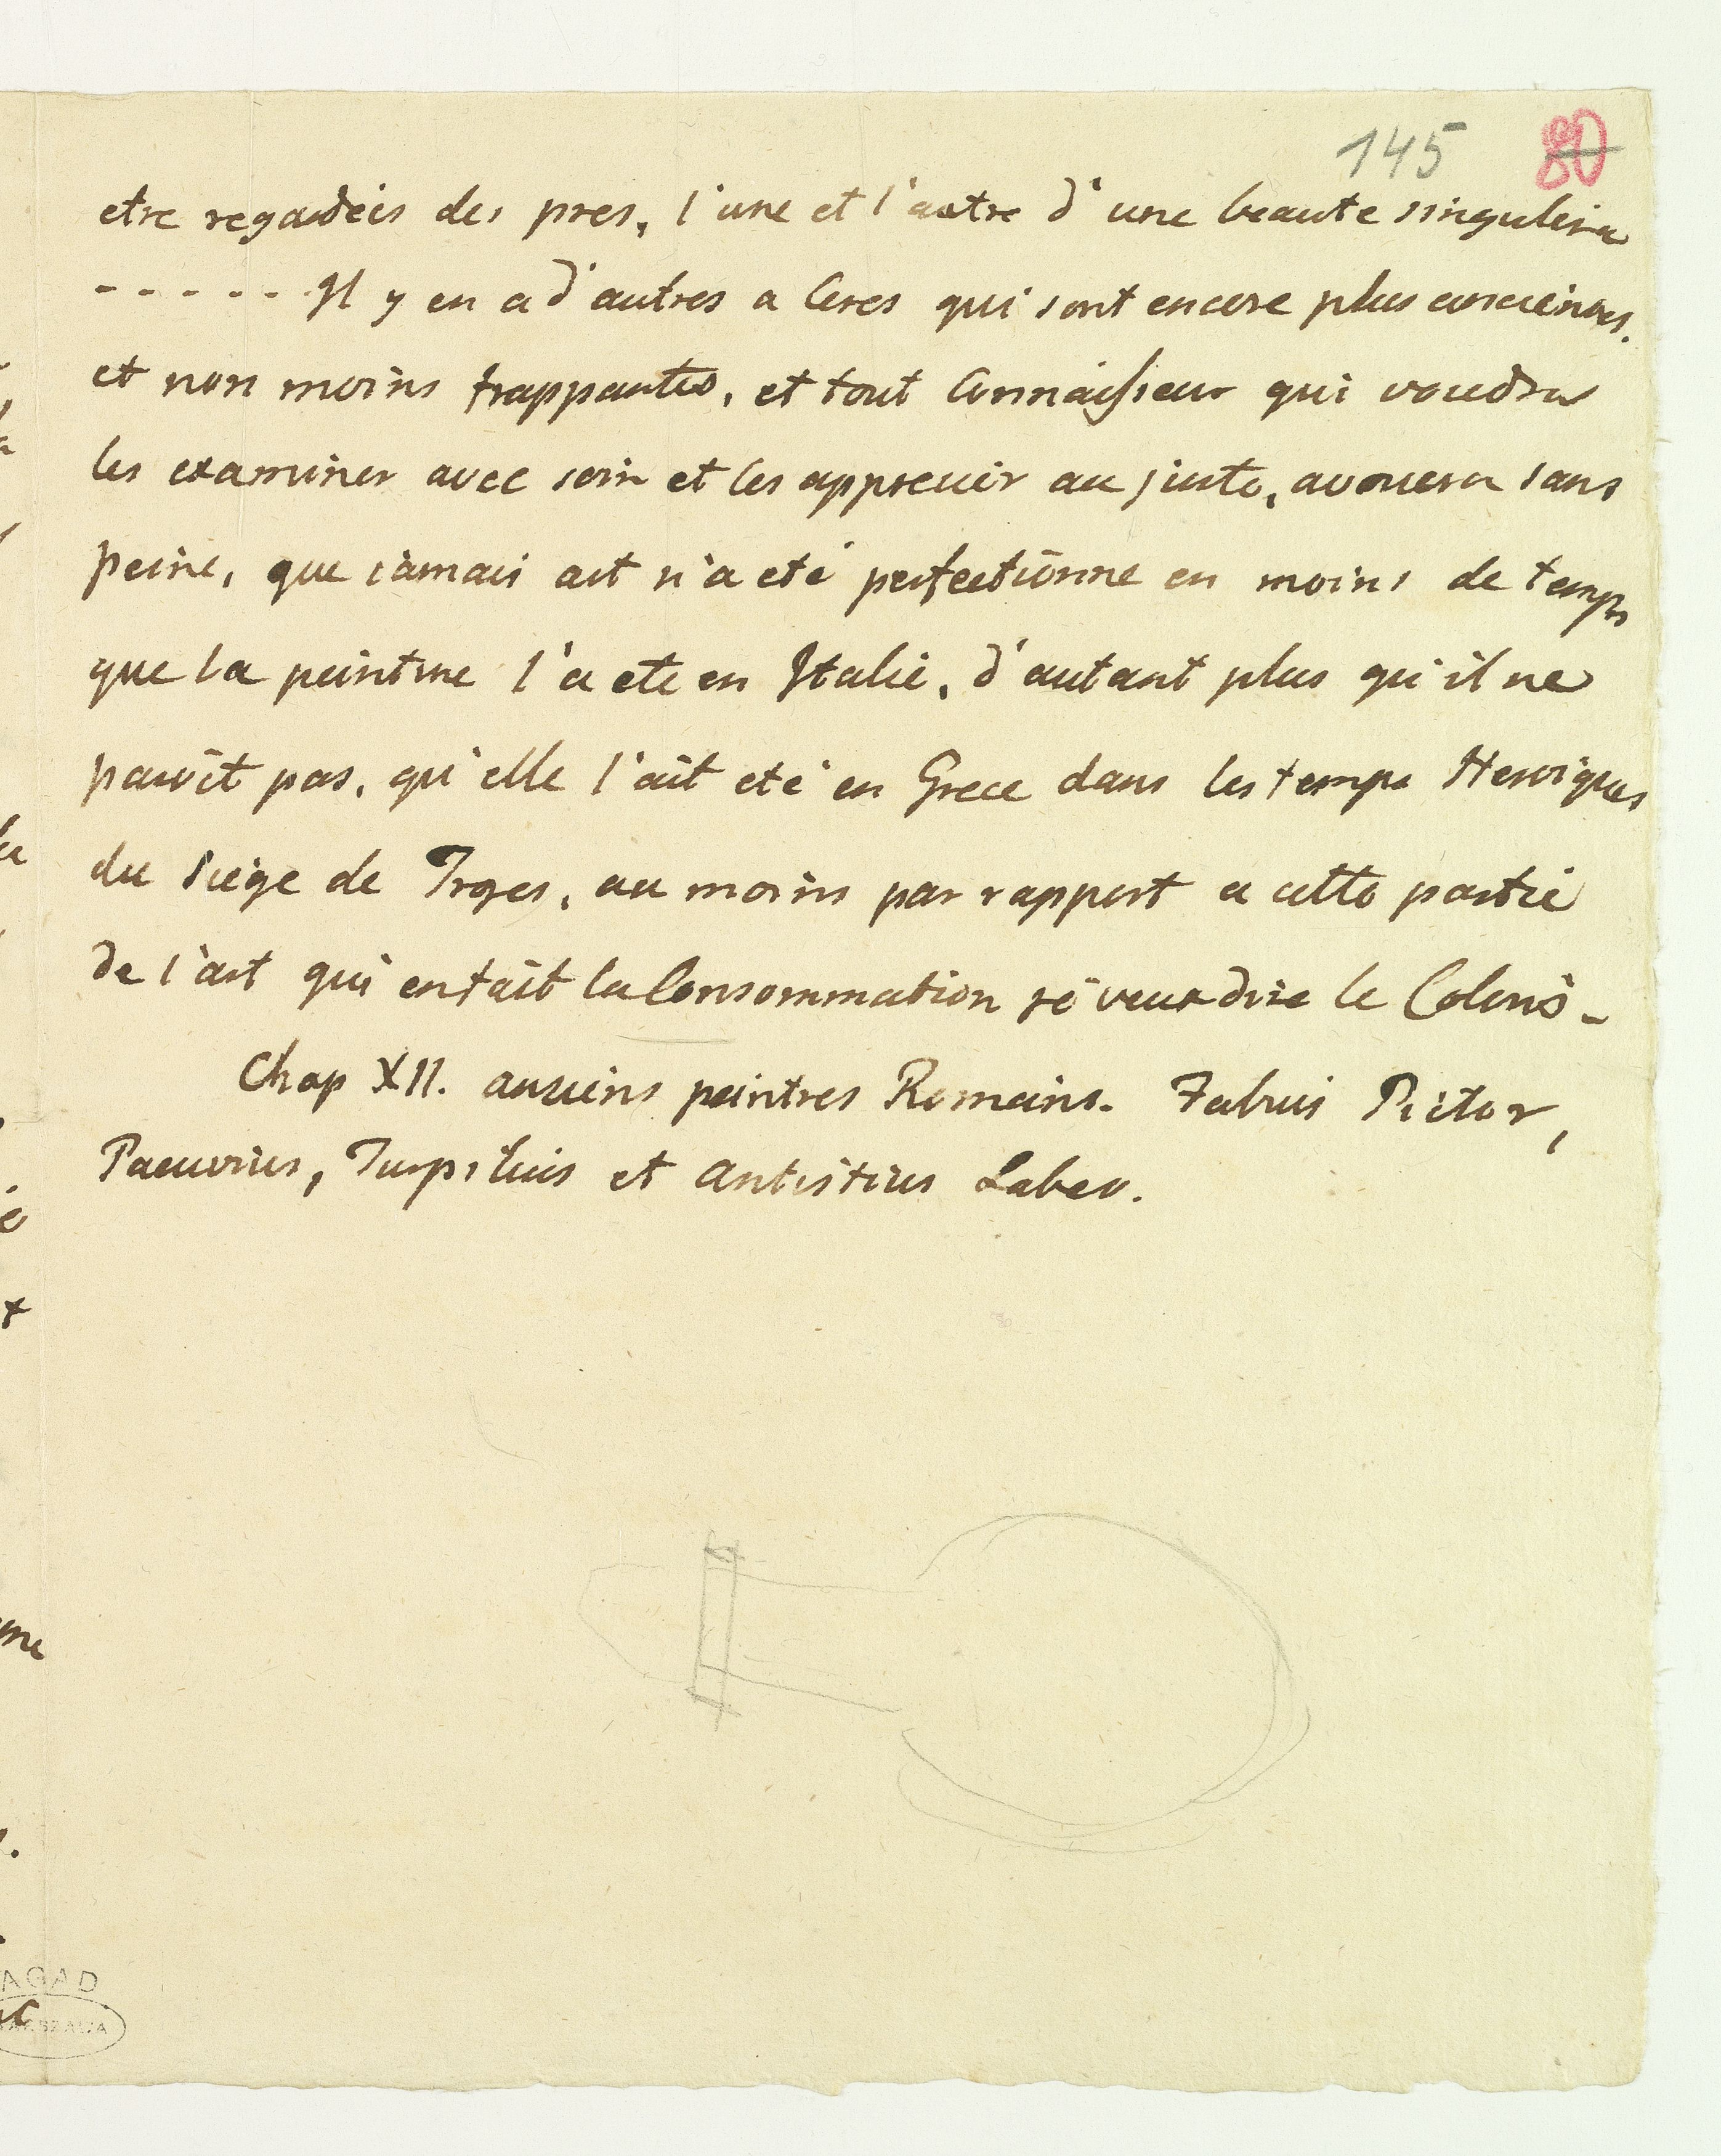 145 80
etre regardeis des pres, l'une et l'autre d'une beaute singuliera
- - - - - Il y en a d'autres a Ceres qui sont encore plus anciennes.
et non moins frappantes, et tout Connaisseur qui voudra
les examiner avec soin et les apprecier au juste, avouera sans
peine, que jamais art n'a eté perfectionne en moins de temps
que la peinture l'a ete en Italie, d'autant plus qu'il ne
paroit pas, qu'elle l'ait eté en Grece dans les temps Heroiques
du siege de Troyes, au moins par rapport a cette partie
de l'art qui enfait la Consommation je veux dire le Coloris -
Chap XII. anciens peintres Romains. Fabius Pictor,
Pacuvius, Turpilius et Antistius Labeo.
AGAD